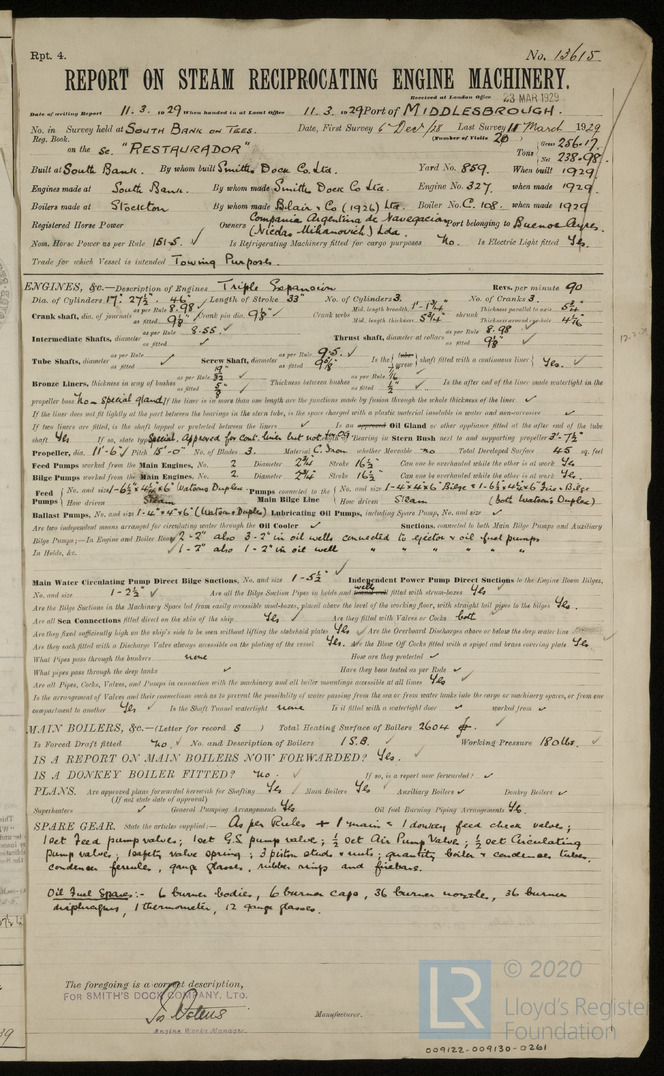 Rpt. 4.
No. 13615
REPORT ON STEAM RECIPROCATING ENGINE MACHINERY.
Received at London Office 23 MAR 1929
Date of writing Report 11.3.1929 When handed in at Local Office 11.3.1929 Port of MIDDLESBROUGH.
No. in Survey held at SOUTH BANK ON TEES. Date, First Survey 6 Decr/28 Last Survey March 1929
Reg. Book. (Number of Visits 20)
on the sc. "RESTAURADOR" Tons Gross 256.17. Net 238.98.
Built at South Bank. By whom built Smiths Dock Co. Ltd. Yard No. 859. When built 1929.
Engines made at South Bank. By whom made Smiths Dock Co Ltd. Engine No. 327. when made 1929.
Boilers made at Stockton By whom made Blair & Co (1926) Ltd. Boiler No. C. 108. when made 1929
Registered Horse Power Owners Compania Argentina de Navegacion (Nicolas Mihanovich) Ltda. Port belonging to Buenos Ayres.
Nom. Horse Power as per Rule 151.5. ✓ Is Refrigerating Machinery fitted for cargo purposes No. Is Electric Light fitted Yes.
Trade for which Vessel is intended Towing Purposes.
ENGINES, &c.—Description of Engines Triple Expansion Revs. per minute 90
Dia. of Cylinders 17" 27½" 46" Length of Stroke 33" No. of Cylinders 3. No. of Cranks 3.
Crank shaft, dia. of journals as per Rule 8.98 as fitted 9⅛" Crank pin dia. 9⅛" Crank webs Mid. length breadth 1'-1¾" Mid. length thickness 5¾" shrunk Thickness parallel to axis 5¾" Thickness around eye-hole 4 1/16"
Intermediate Shafts, diameter as per Rule 8.55 as fitted Thrust shaft, diameter at collars as per Rule 8.98 as fitted 9⅛"
Tube Shafts, diameter as per Rule as fitted Screw Shaft, diameter as per Rule 9.5 as fitted Is the screw shaft fitted with a continuous liner Yes.
Bronze Liners, thickness in way of bushes as per Rule 19/32 as fitted 5/8 Thickness between bushes as per Rule 7/16 as fitted ½" Is the after end of the liner made watertight in the
propeller boss No - special gland If the liner is in more than one length are the junctions made by fusion through the whole thickness of the liner ✓
If the liner does not fit tightly at the part between the bearings in the stern tube, is the space charged with a plastic material insoluble in water and non-corrosive ✓
If two liners are fitted, is the shaft lapped or protected between the liners ✓ Is an approved Oil Gland or other appliance fitted at the after end of the tube
shaft Yes If so, state type Special, Approved for cont. liner but not Length of Bearing in Stern Bush next to and supporting propeller 3'-7½"
Propeller, dia. 11'-6" Pitch 15'-0" No. of Blades 3. Material C. Iron whether Moveable no Total Developed Surface 45 sq. feet
Feed Pumps worked from the Main Engines, No. 2 Diameter 2¾" Stroke 16½" Can one be overhauled while the other is at work Yes
Bilge Pumps worked from the Main Engines, No. 2 Diameter 2¾" Stroke 16½" Can one be overhauled while the other is at work Yes
Feed Pumps No. and size 1-6½"x4½"x6" Watsons Duplex How driven Steam
Pumps connected to the Main Bilge Line No. and size 1-4"x4"x6" Bilge & 1-6½"x4½"x6" Fire & Bilge How driven Steam (both Watson's Duplex)
Ballast Pumps, No. and size 1-4"x4"x6" (Watsons Duplex) Lubricating Oil Pumps, including Spare Pump, No. and size ✓
Are two independent means arranged for circulating water through the Oil Cooler ✓ Suctions, connected to both Main Bilge Pumps and Auxiliary
Bilge Pumps;—In Engine and Boiler Room 2-2" also 3-2" in oil wells connected to ejector & oil fuel pumps
In Holds, &c. 1-2" also 1-2" in oil well " " " " "
Main Water Circulating Pump Direct Bilge Suctions, No. and size 1-5½" Independent Power Pump Direct Suctions to the Engine Room Bilges,
No. and size 1-2½" ✓ Are all the Bilge Suction Pipes in holds and wells fitted with strum-boxes Yes
Are the Bilge Suctions in the Machinery Space led from easily accessible mud-boxes, placed above the level of the working floor, with straight tail pipes to the bilges Yes.
Are all Sea Connections fitted direct on the skin of the ship Yes Are they fitted with Valves or Cocks both
Are they fixed sufficiently high on the ship's side to be seen without lifting the stokehold plates Yes Are the Overboard Discharges above or below the deep water line
Are they each fitted with a Discharge Valve always accessible on the plating of the vessel Yes. Are the Blow Off Cocks fitted with a spigot and brass covering plate Yes
What Pipes pass through the bunkers none How are they protected ✓
What pipes pass through the deep tanks ✓ Have they been tested as per Rule ✓
Are all Pipes, Cocks, Valves, and Pumps in connection with the machinery and all boiler mountings accessible at all times Yes
Is the arrangement of Valves and their connections such as to prevent the possibility of water passing from the sea or from water tanks into the cargo or machinery spaces, or from one
compartment to another Yes Is the Shaft Tunnel watertight none Is it fitted with a watertight door ✓ worked from ✓
MAIN BOILERS, &c.—(Letter for record S) Total Heating Surface of Boilers 2604
Is Forced Draft fitted No. No. and Description of Boilers 1 S.B. Working Pressure 180 lbs.
IS A REPORT ON MAIN BOILERS NOW FORWARDED? Yes.
IS A DONKEY BOILER FITTED? No. If so, is a report now forwarded? ✓
PLANS. Are approved plans forwarded herewith for Shafting Yes Main Boilers Yes Auxiliary Boilers ✓ Donkey Boilers ✓
(If not state date of approval)
Superheaters General Pumping Arrangements Yes Oil fuel Burning Piping Arrangements Yes.
SPARE GEAR. State the articles supplied:— As per Rules + 1 main & 1 donkey feed check valve;
1 set Feed pump valves; 1 set G.S. pump valve; ½ set Air Pump Valve; ½ set Circulating
pump valves; 1 safety valve spring; 3 piston studs & nuts; quantity boiler & condenser tubes,
condenser ferrules, gauge glasses, rubber rings and firebars.
Oil Fuel Spares:- 6 burner bodies, 6 burner caps, 36 burner nozzles, 36 burner
diaphragms, 1 thermometer, 12 gauge glasses.
The foregoing is a correct description,
FOR SMITH'S DOCK COMPANY, LTD.
Manufacturer.
Engine Works Manager.
LR
© 2020
Lloyd's Register
Foundation
009122-009130-0261